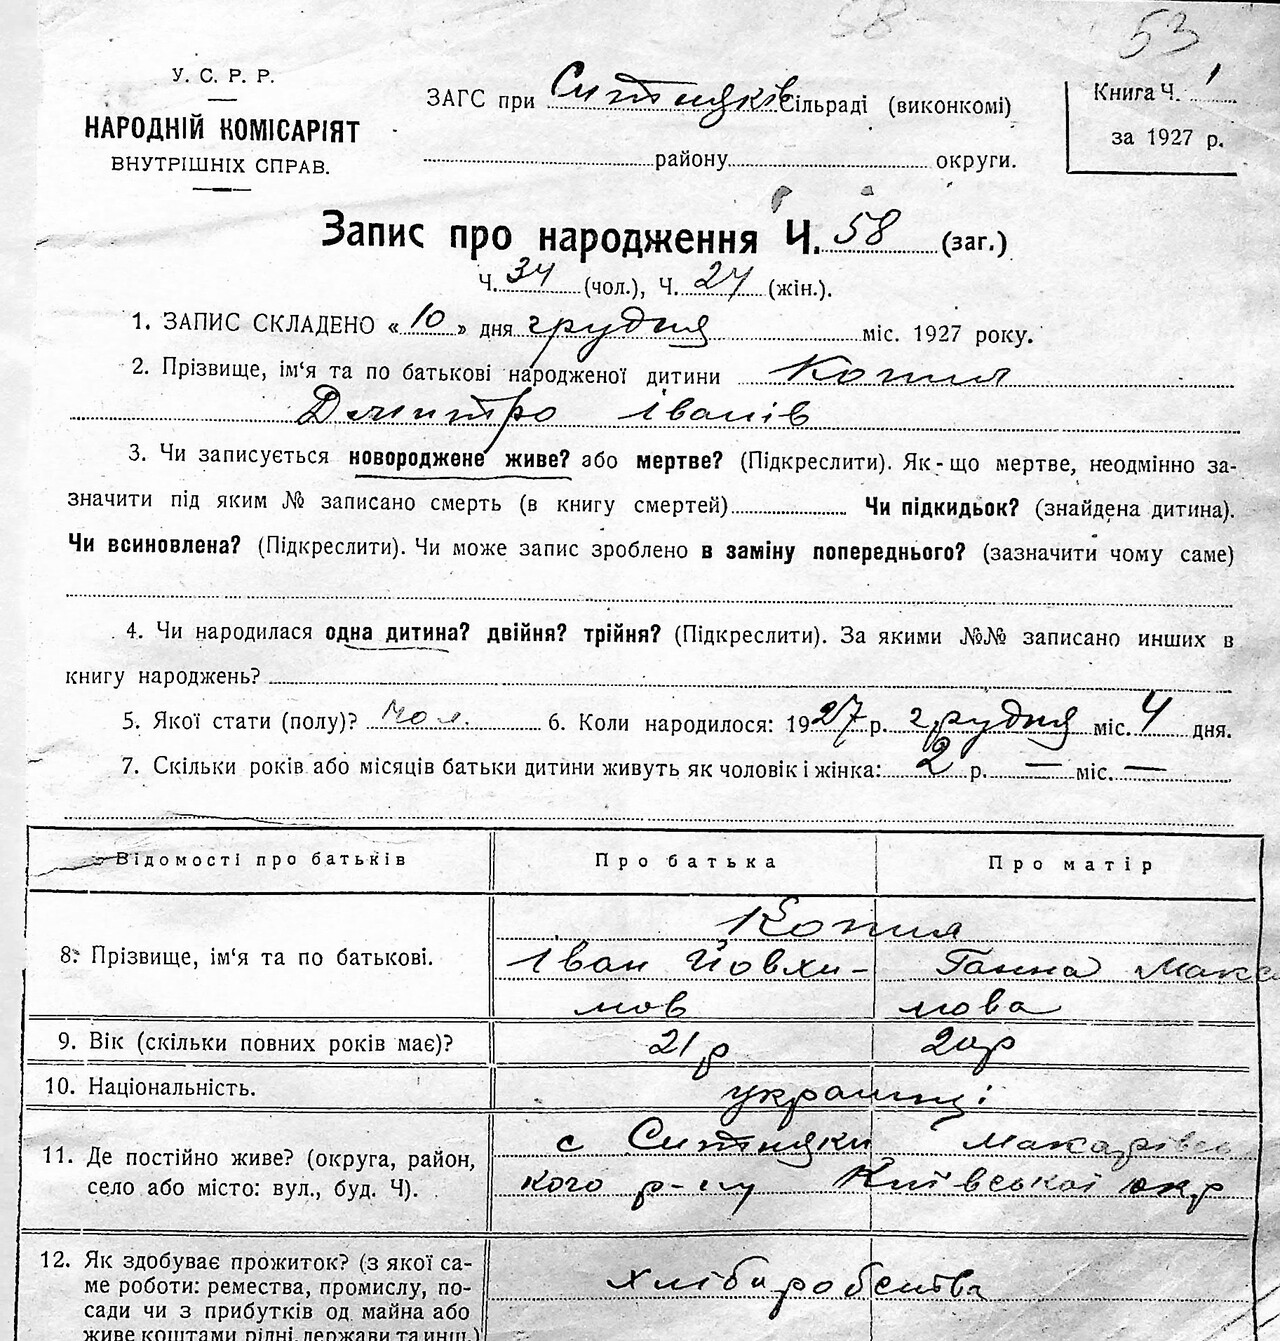 58 53
У. С. Р. Р.
НАРОДНІЙ КОМІСАРІЯТ
ВНУТРІШНІХ СПРАВ.
ЗАГС при Ситняків Сільраді (виконкомі)
району округи.
Книга Ч. 1
за 1927 р.
Запис про народження Ч. 58 (заг.)
Ч. 34 (чол.), Ч. 24 (жін.).
1. ЗАПИС СКЛАДЕНО « 10 » дня грудня міс. 1927 року.
2. Прізвище, ім'я та по батькові народженої дитини Копил
Дмитро Іванів
3. Чи записується новороджене живе? або мертве? (Підкреслити). Як-що мертве, неодмінно за-
значити під яким № записано смерть (в книгу смертей) Чи підкидьок? (знайдена дитина).
Чи всиновлена? (Підкреслити). Чи може запис зроблено в заміну попереднього? (зазначити чому саме)
4. Чи народилася одна дитина? двійня? трійня? (Підкреслити). За якими №№ записано инших в
книгу народжень?
5. Якої стати (полу)? чол. 6. Коли народилося: 1927 р. грудня міс. 4 дня.
7. Скільки років або місяців батьки дитини живуть як чоловік і жінка: 2 р. — міс. —
Відомості про батьків Про батька Про матір
8. Прізвище, ім'я та по батькові. Копил
Іван Йовхи- Ганна Макси
мов мова
9. Вік (скільки повних років має)? 21 р 20 р
10. Національність. українці
11. Де постійно живе? (округа, район,
село або місто: вул., буд. Ч).
с Ситняки Макарівсь
кого р-ну Київської окр
12. Як здобуває прожиток? (з якої са-
ме роботи: ремества, промислу, по-
сади чи з прибутків од майна або
живе коштами рідні, держави та инш.)
хліборобства